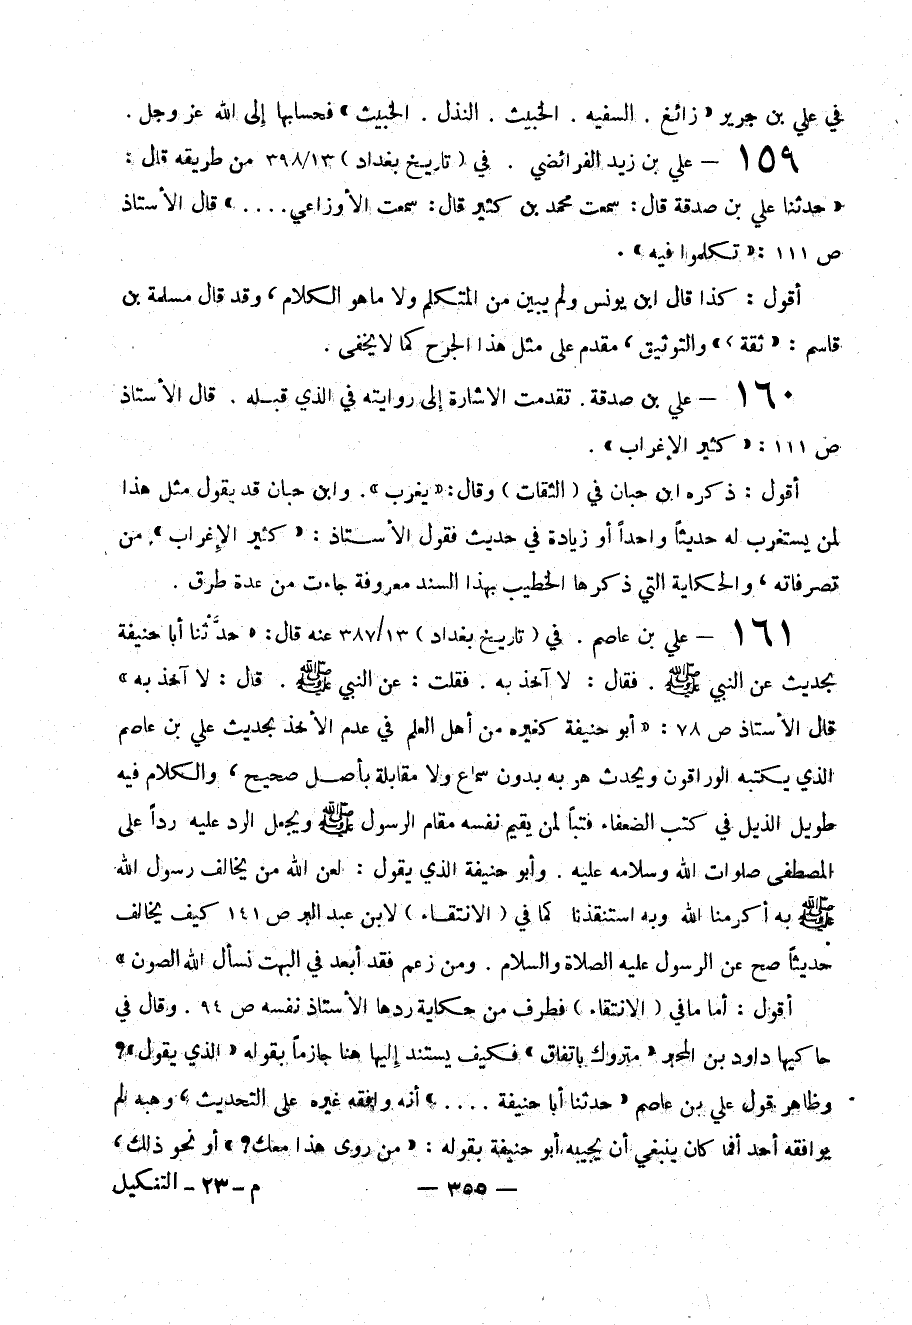 في علي بن جرير « زائغ . السفيه . الخبيث . النذل . الخبيث » فحسابها إلى الله عز وجل .
١٥٩ – علي بن زيد الفرائضي . في ( تاريخ بغداد ) ٣٩٨/١٣ من طريقه قال :
« حدثنا علي بن صدقة قال : سمعت محمد بن كثير قال : سمعت الأوزاعي .... » قال الأستاذ
ص ١١١ : « تكلموا فيه » .
أقول : كذا قال ابن يونس ولم يبين من المتكلم ولا ماهو الكلام ، وقد قال مسلمة بن
قاسم : « ثقة ، » والتوثيق ، مقدم على مثل هذا الجرح كما لا يخفى .
١٦٠ – علي بن صدقة . تقدمت الاشارة إلى روايته في الذي قبله . قال الأستاذ
ص ١١١ : « كثير الإغراب » .
أقول : ذكره ابن حبان في ( الثقات ) وقال : « يغرب » . وابن حبان قد يقول مثل هذا
لمن يستغرب له حديثاً واحداً أو زيادة في حديث فقول الأستاذ : « كثير الإغراب » . من
تصرفاته ، والحكاية التي ذكرها الخطيب بهذا السند معروفة جاءت من عدة طرق .
١٦١ – علي بن عاصم . في ( تاريخ بغداد ) ٣٨٧/١٣ عنه قال : « حدَّثنا أبا حنيفة
بحديث عن النبي ﷺ . فقال : لا آخذ به . فقلت : عن النبي ﷺ . قال : لا آخذ به »
قال الأستاذ ص ٧٨ : « أبو حنيفة كغيره من أهل العلم في عدم الأخذ بحديث علي بن عاصم
الذي يكتبه الوراقون ويحدث هو به بدون سماع ولا مقابلة بأصل صحيح ، والكلام فيه
طويل الذيل في كتب الضعفاء فتباً لمن يقيم نفسه مقام الرسول ﷺ ويجعل الرد عليه رداً على
المصطفى صلوات الله وسلامه عليه . وأبو حنيفة الذي يقول : لعن الله من يخالف رسول الله
ﷺ به أكرمنا الله وبه استنقذنا كما في ( الانتقاء ) لابن عبد البر ص ١٤١ كيف يخالف
حديثاً صح عن الرسول عليه الصلاة والسلام . ومن زعم فقد أبعد في البهت نسأل الله الصون »
أقول : أما مافي ( الانتقاء ) فطرف من حكاية ردها الأستاذ نفسه ص ٩٤ . وقال في
حاكيها داود بن المحبر « متروك باتفاق » فكيف يستند إليها هنا جازماً بقوله « الذي يقول » ؟
وظاهر قول علي بن عاصم « حدثنا أبا حنيفة .... » أنه وافقه غيره على التحديث ، وهبه لم
يوافقه أحد أفما كان ينبغي أن يجيبه أبو حنيفة بقوله : « من روى هذا معك ؟ » أو نحو ذلك ،
– ٣٥٥ – م – ٢٣ – التنكيل